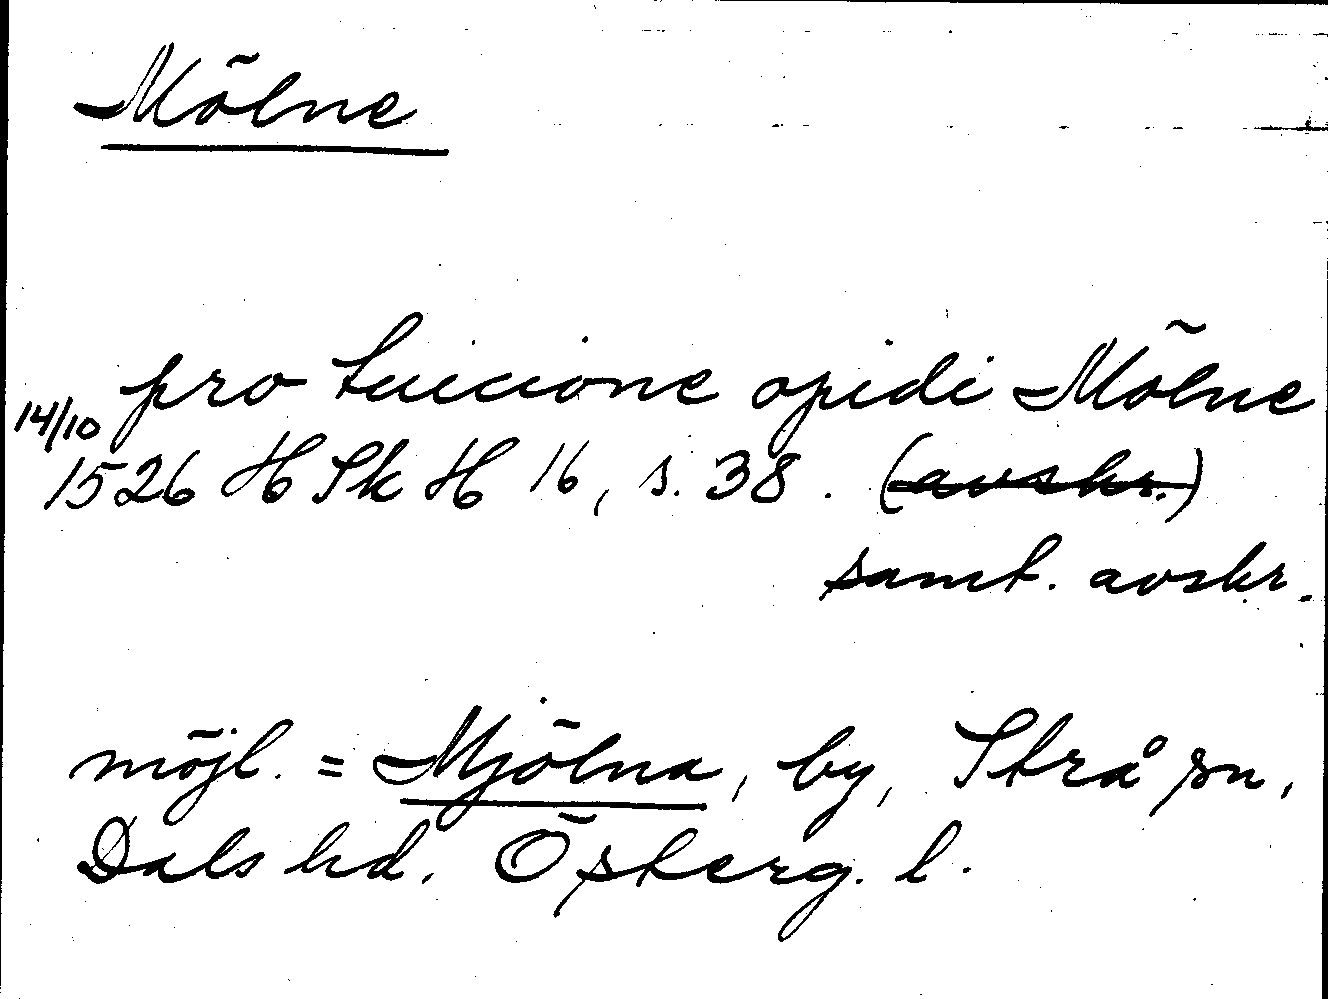 Mölne
pro tuicione opidi Mölne
14/10 1526 H Sk H 16, s. 38. (avskr.)
samt. avskr.
möjl. = Mjölna, by, Strå sn,
Dals hd, Österg. l.